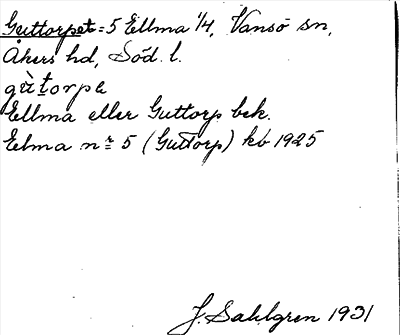 Guttorpet = 5 Ellma 1/4, Vansö sn,
Åkers hd, Söd. l.
gùtorpe
Ellma eller Guttorp bek.
Elma nr 5 (Guttorp) kb 1925
J. Sahlgren 1931